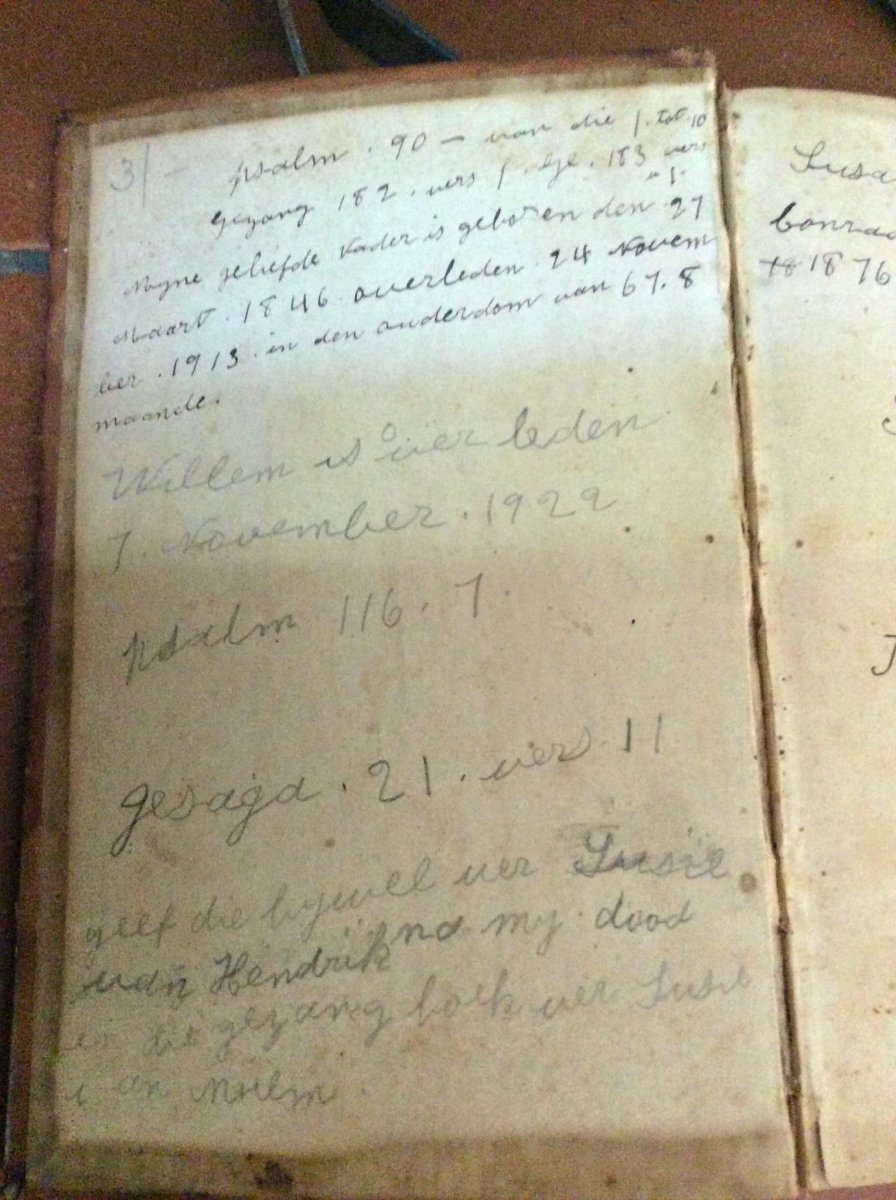 31 -
psalm . 90 - van die 1 . tot 10
gezang 182 . vers 1 . ge . 183 vers
" 1 .
Myne geliefde vader is geboren den 27
Maart . 1846 . overleden . 24 Novem
ber . 1913 . in den ouderdom van 67 . 8
maande .
Willem is over leden
7 . November . 1922
psalm 116 . 7 .
gesaga . 21 . vers 11
geef die bywel ver Susie
van Hendrik na my dood
en die gezang boek ver Susie
van
Susa
Conra
18 1876